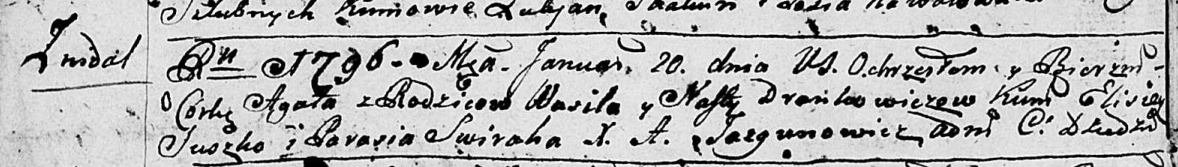 Szlubnych Kumowie
Zudal
Rn 1796 Mca Januar. 20. dnia Ochrzesłem y Bierzm-
Corkę Agata z Rodzicow Wasila y Nasty Drankowiczow Kum Elisiey
Juszko i Parasia Swiraha X. A. Jazgunowicz adm C. Dziedzi